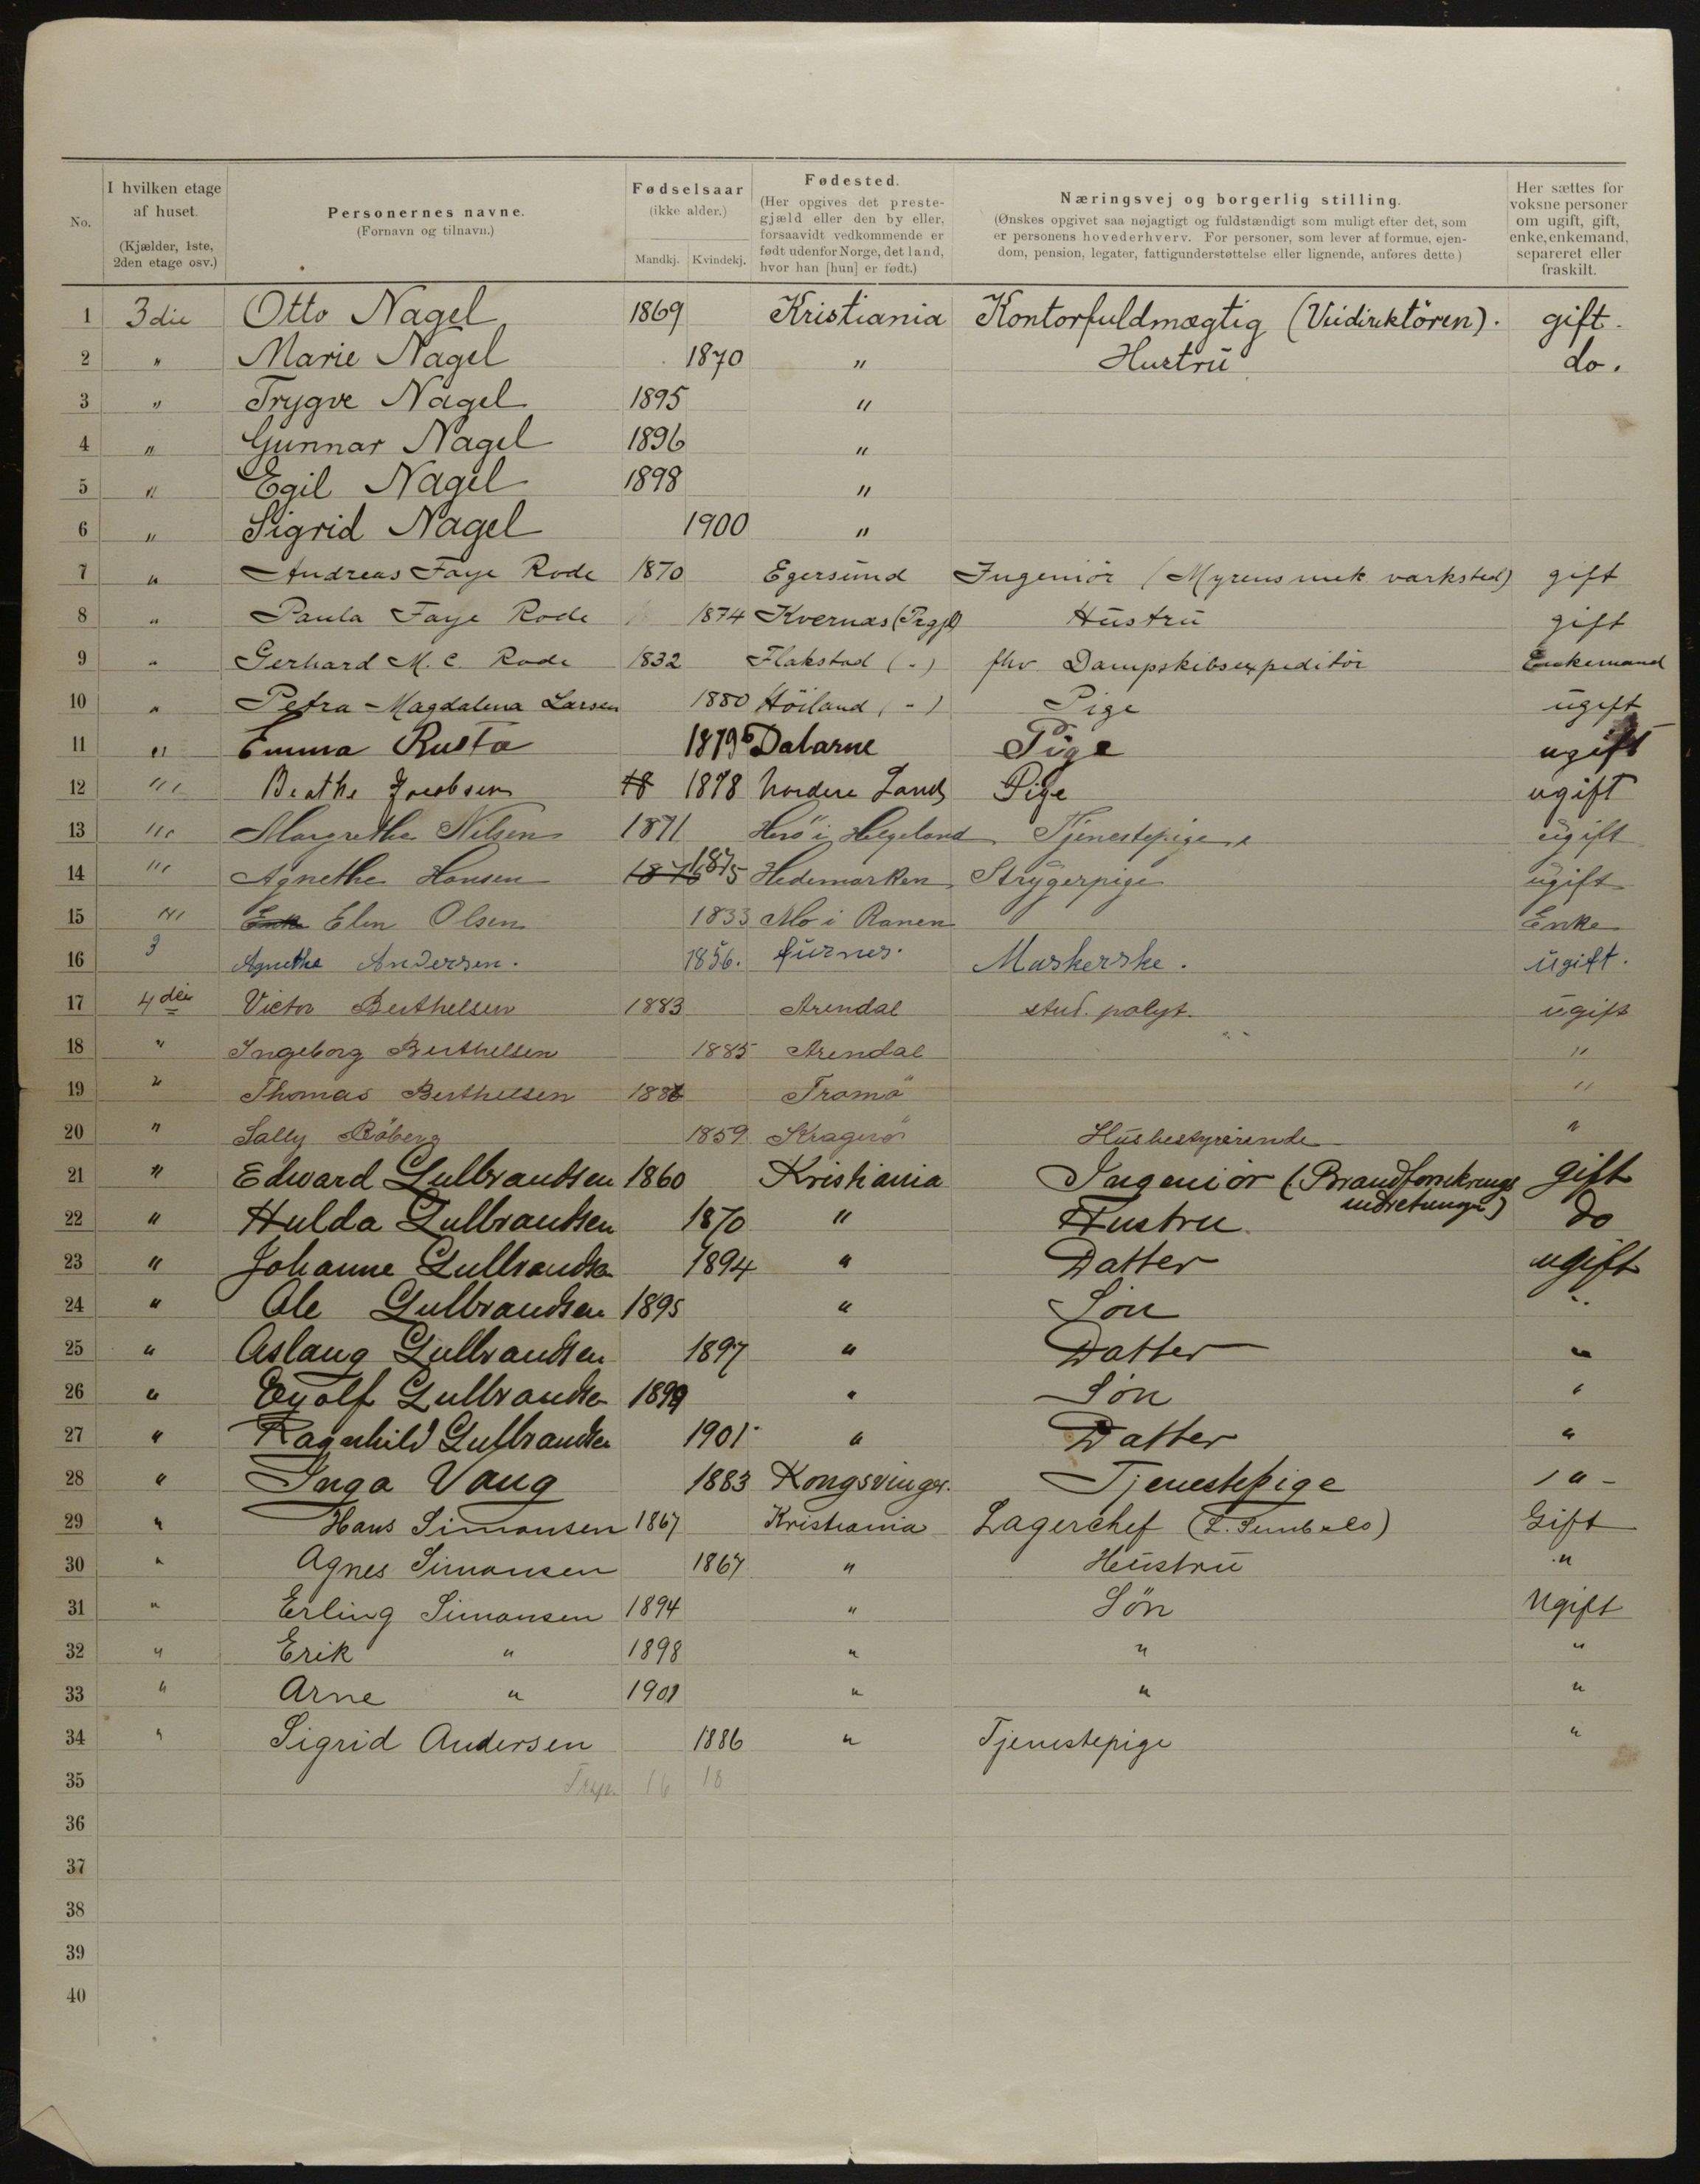 No.
I hvilken etage
af huset.
(Kjælder, 1ste,
2den etage osv.)
Personernes navne.
(Fornavn og tilnavn.)
Fødselsaar
(ikke alder.)
Mandkj. Kvindekj.
Fødested.
(Her opgives det preste-
gjæld eller den by eller,
forsaavidt vedkommende er
født udenfor Norge, det land,
hvor han [hun] er født.)
Næringsvej og borgerlig stilling.
(Ønskes opgivet saa nøjagtigt og fuldstændigt som muligt efter det, som
er personens hovederhverv. For personer, som lever af formue, ejen-
dom, pension, legater, fattigunderstøttelse eller lignende, anføres dette.)
Her sættes for
voksne personer
om ugift, gift,
enke, enkemand,
separeret eller
fraskilt.
1 3die Otto Nagel 1869 Kristiania Kontorfuldmægtig (Veidirektören). gift.
2 " Marie Nagel 1870 " Hustru do.
3 " Trygve Nagel 1895 "
4 " Gunnar Nagel 1896 "
5 " Egil Nagel 1898 "
6 " Sigrid Nagel 1900 "
7 " Andreas Faye Rode 1870 Egersund Ingeniör (Myrens mek værksted) gift
8 " Paula Faye Rode 1874 Kvernæs (Prgjl) Hustru gift
9 " Gerhard M. C. Rode 1832 Flakstad (-) fhv Dampskibsexpeditör Enkemand
10 " Petra Magdalena Larsen 1880 Höiland (-) Pige ugift
11 " Emma Rusta 1879 Dalarne Pige ugift
12 " Beathe Jacobsen 18 1878 Nordere Land Pige ugift
13 " Margrethe Nilsen 1871 Herö i Helgeland Tjenestepige ugift
14 " Agnethe Hansen 1876 1875 Hedemarken Strygerpige ugift
15 " Enke Elen Olsen 1833 Mo i Ranen Enke
16 3 Agnethe Andersen. 1856. furnes. Maskerske. ugift.
17 4die Victor Berthelsen 1883 Arendal stud. polyt. ugift
18 " Ingeborg Berthelsen 1885 Arendal "
19 " Thomas Berthelsen 1886 Tromö "
20 " Sally Böberg 1859 Kragerö Husbestyrerinde "
21 " Edward Gulbrandsen 1860 Kristiania Ingeniør (Brandforsikrings gift
indretningen)
22 " Hulda Gulbrandsen 1870 " Hustru do
23 " Johanne Gulbrandsen 1894 " Datter ugift
24 " Ole Gulbrandsen 1895 " Søn "
25 " Aslaug Gulbrandsen 1897 " Datter "
26 " Eyolf Gulbrandsen 1899 " Søn "
27 " Ragnhild Gulbrandsen 1901 " Datter "
28 " Inga Vang 1883 Kongsvinger. Tjenestepige "
29 " Hans Simonsen 1867 Kristiania Lagerchef Gift
30 " Agnes Simonsen 1867 " Hustru "
31 " Erling Simonsen 1894 " Sön Ugift
32 " Erik " 1898 " " "
33 " Arne " 1901 " " "
34 " Sigrid Andersen 1886 " Tjenestepige "
35 16 18
36
37
38
39
40